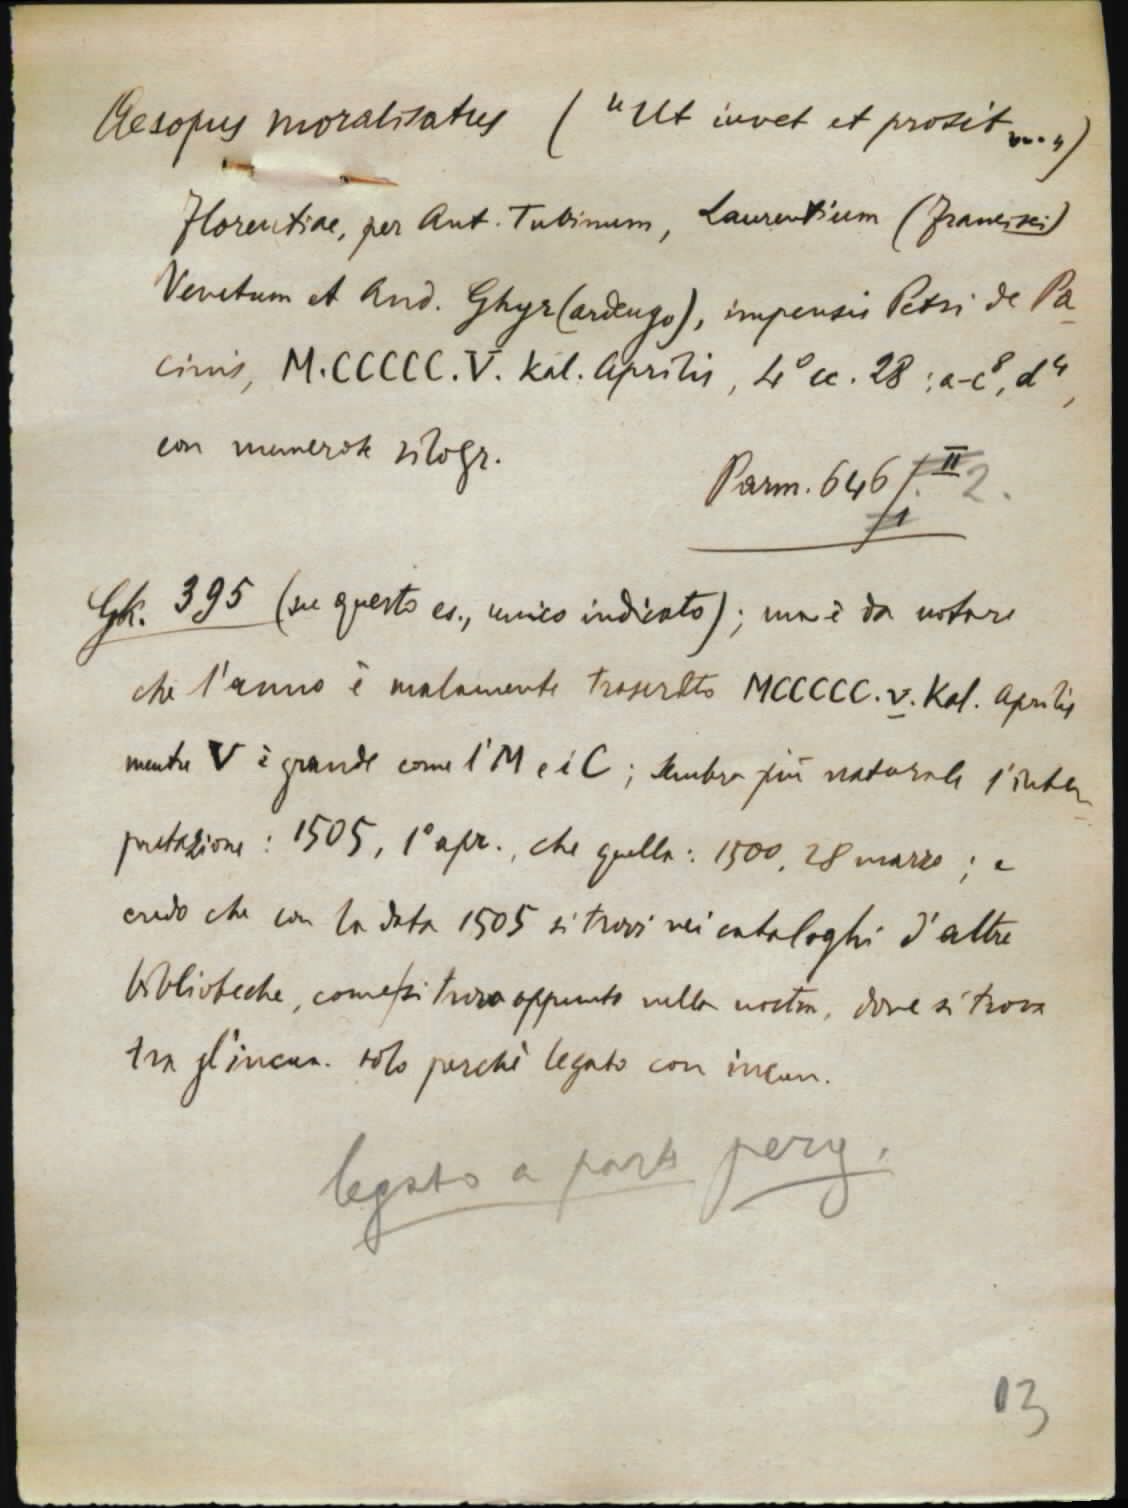 Aesopus moralisatus ( "Ut iuvet et prosit ....")
Florentiae, per Ant. Tubinum, Laurentium (Francisci)
Venetum et And. Ghyr(ardengo), impensis Petri de Pa
cinis, M.CCCCC.V. Kal. Aprilis, 4° cc. 28 : a-c⁸, d⁴,
con numerose silogr.
Parm. 646/. II 2.
1
Gk. 395 (su questo es., unico indicato); ma è da notare
che l'anno è malamente trascritto MCCCCC.v. Kal. Aprilis
mentre V è grande come l'M e i C ; sembra più naturale l'inter
pretazione : 1505, 1° apr., che quella : 1500, 28 marzo ; e
credo che con la data 1505 si trovi nei cataloghi d'altre
biblioteche, come si trova appunto nella nostra, dove si trova
tra gl'incun. solo perchè legato con incun.
legato a parte perg.
13